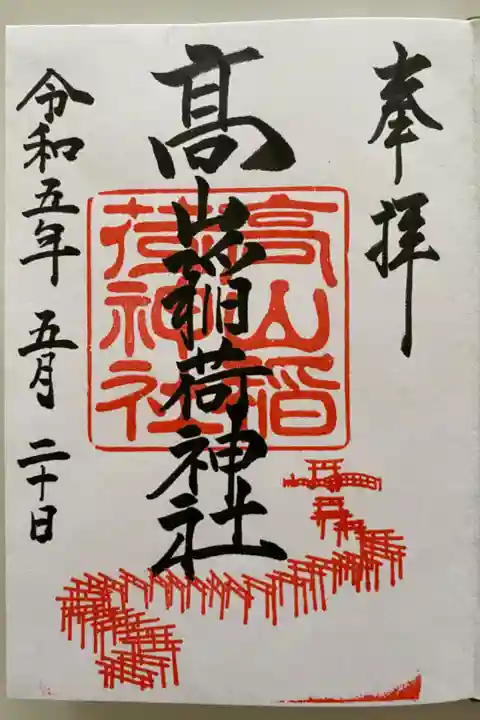 奉拝
髙山稲荷神社
高山稲
荷神社
令和五年 五月 二十日